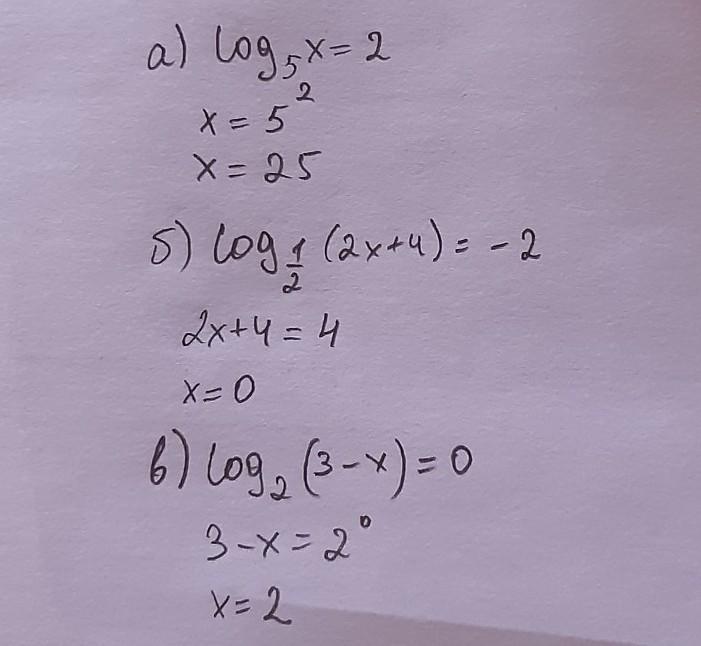 а) log₅x = 2
x = 5²
x = 25
б) log_{1/2} (2x+4) = -2
2x+4 = 4
x = 0
в) log₂ (3-x) = 0
3-x = 2⁰
x = 2